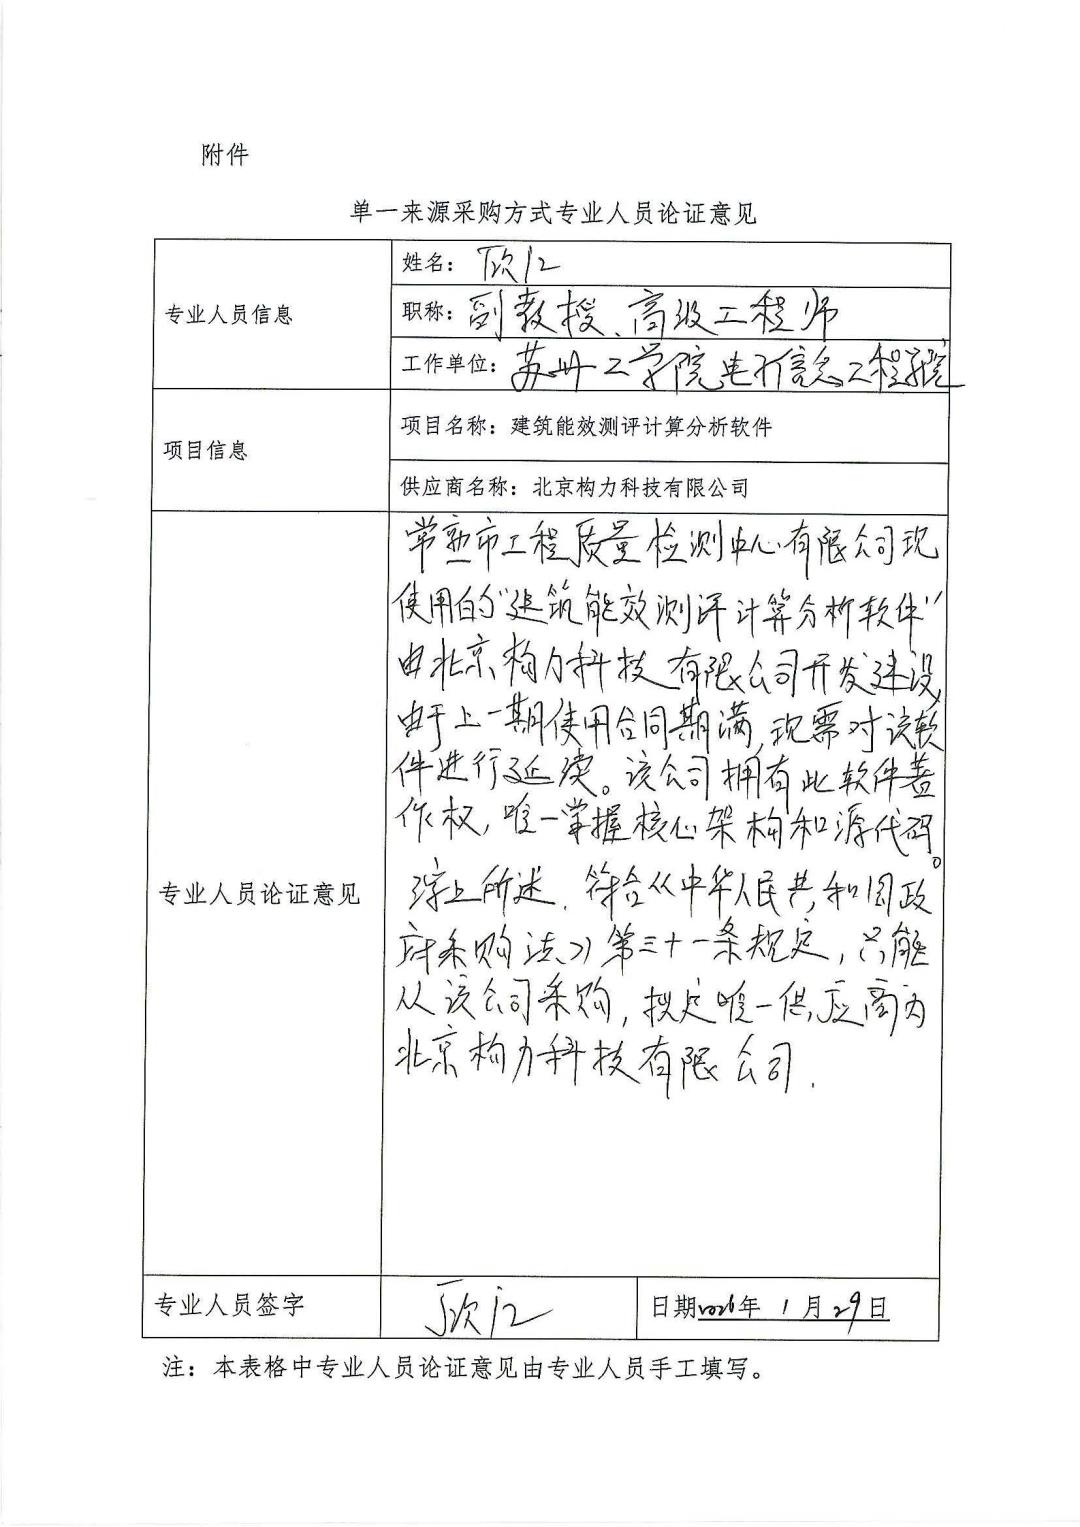 附件
单一来源采购方式专业人员论证意见
专业人员信息
姓名：
职称：副教授、高级工程师
工作单位：苏州工学院电子信息工程学院
项目信息
项目名称：建筑能效测评计算分析软件
供应商名称：北京构力科技有限公司
专业人员论证意见
常熟市工程质量检测中心有限公司现
使用的“建筑能效测评计算分析软件”
由北京构力科技有限公司开发建设,
由于上一期使用合同期满,现需对该软
件进行延续。该公司拥有此软件著
作权,唯一掌握核心架构和源代码。
综上所述,符合《中华人民共和国政
府采购法》第三十一条规定,只能
从该公司采购,拟定唯一供应商为
北京构力科技有限公司.
专业人员签字
日期2026年 1 月 29 日
注：本表格中专业人员论证意见由专业人员手工填写。